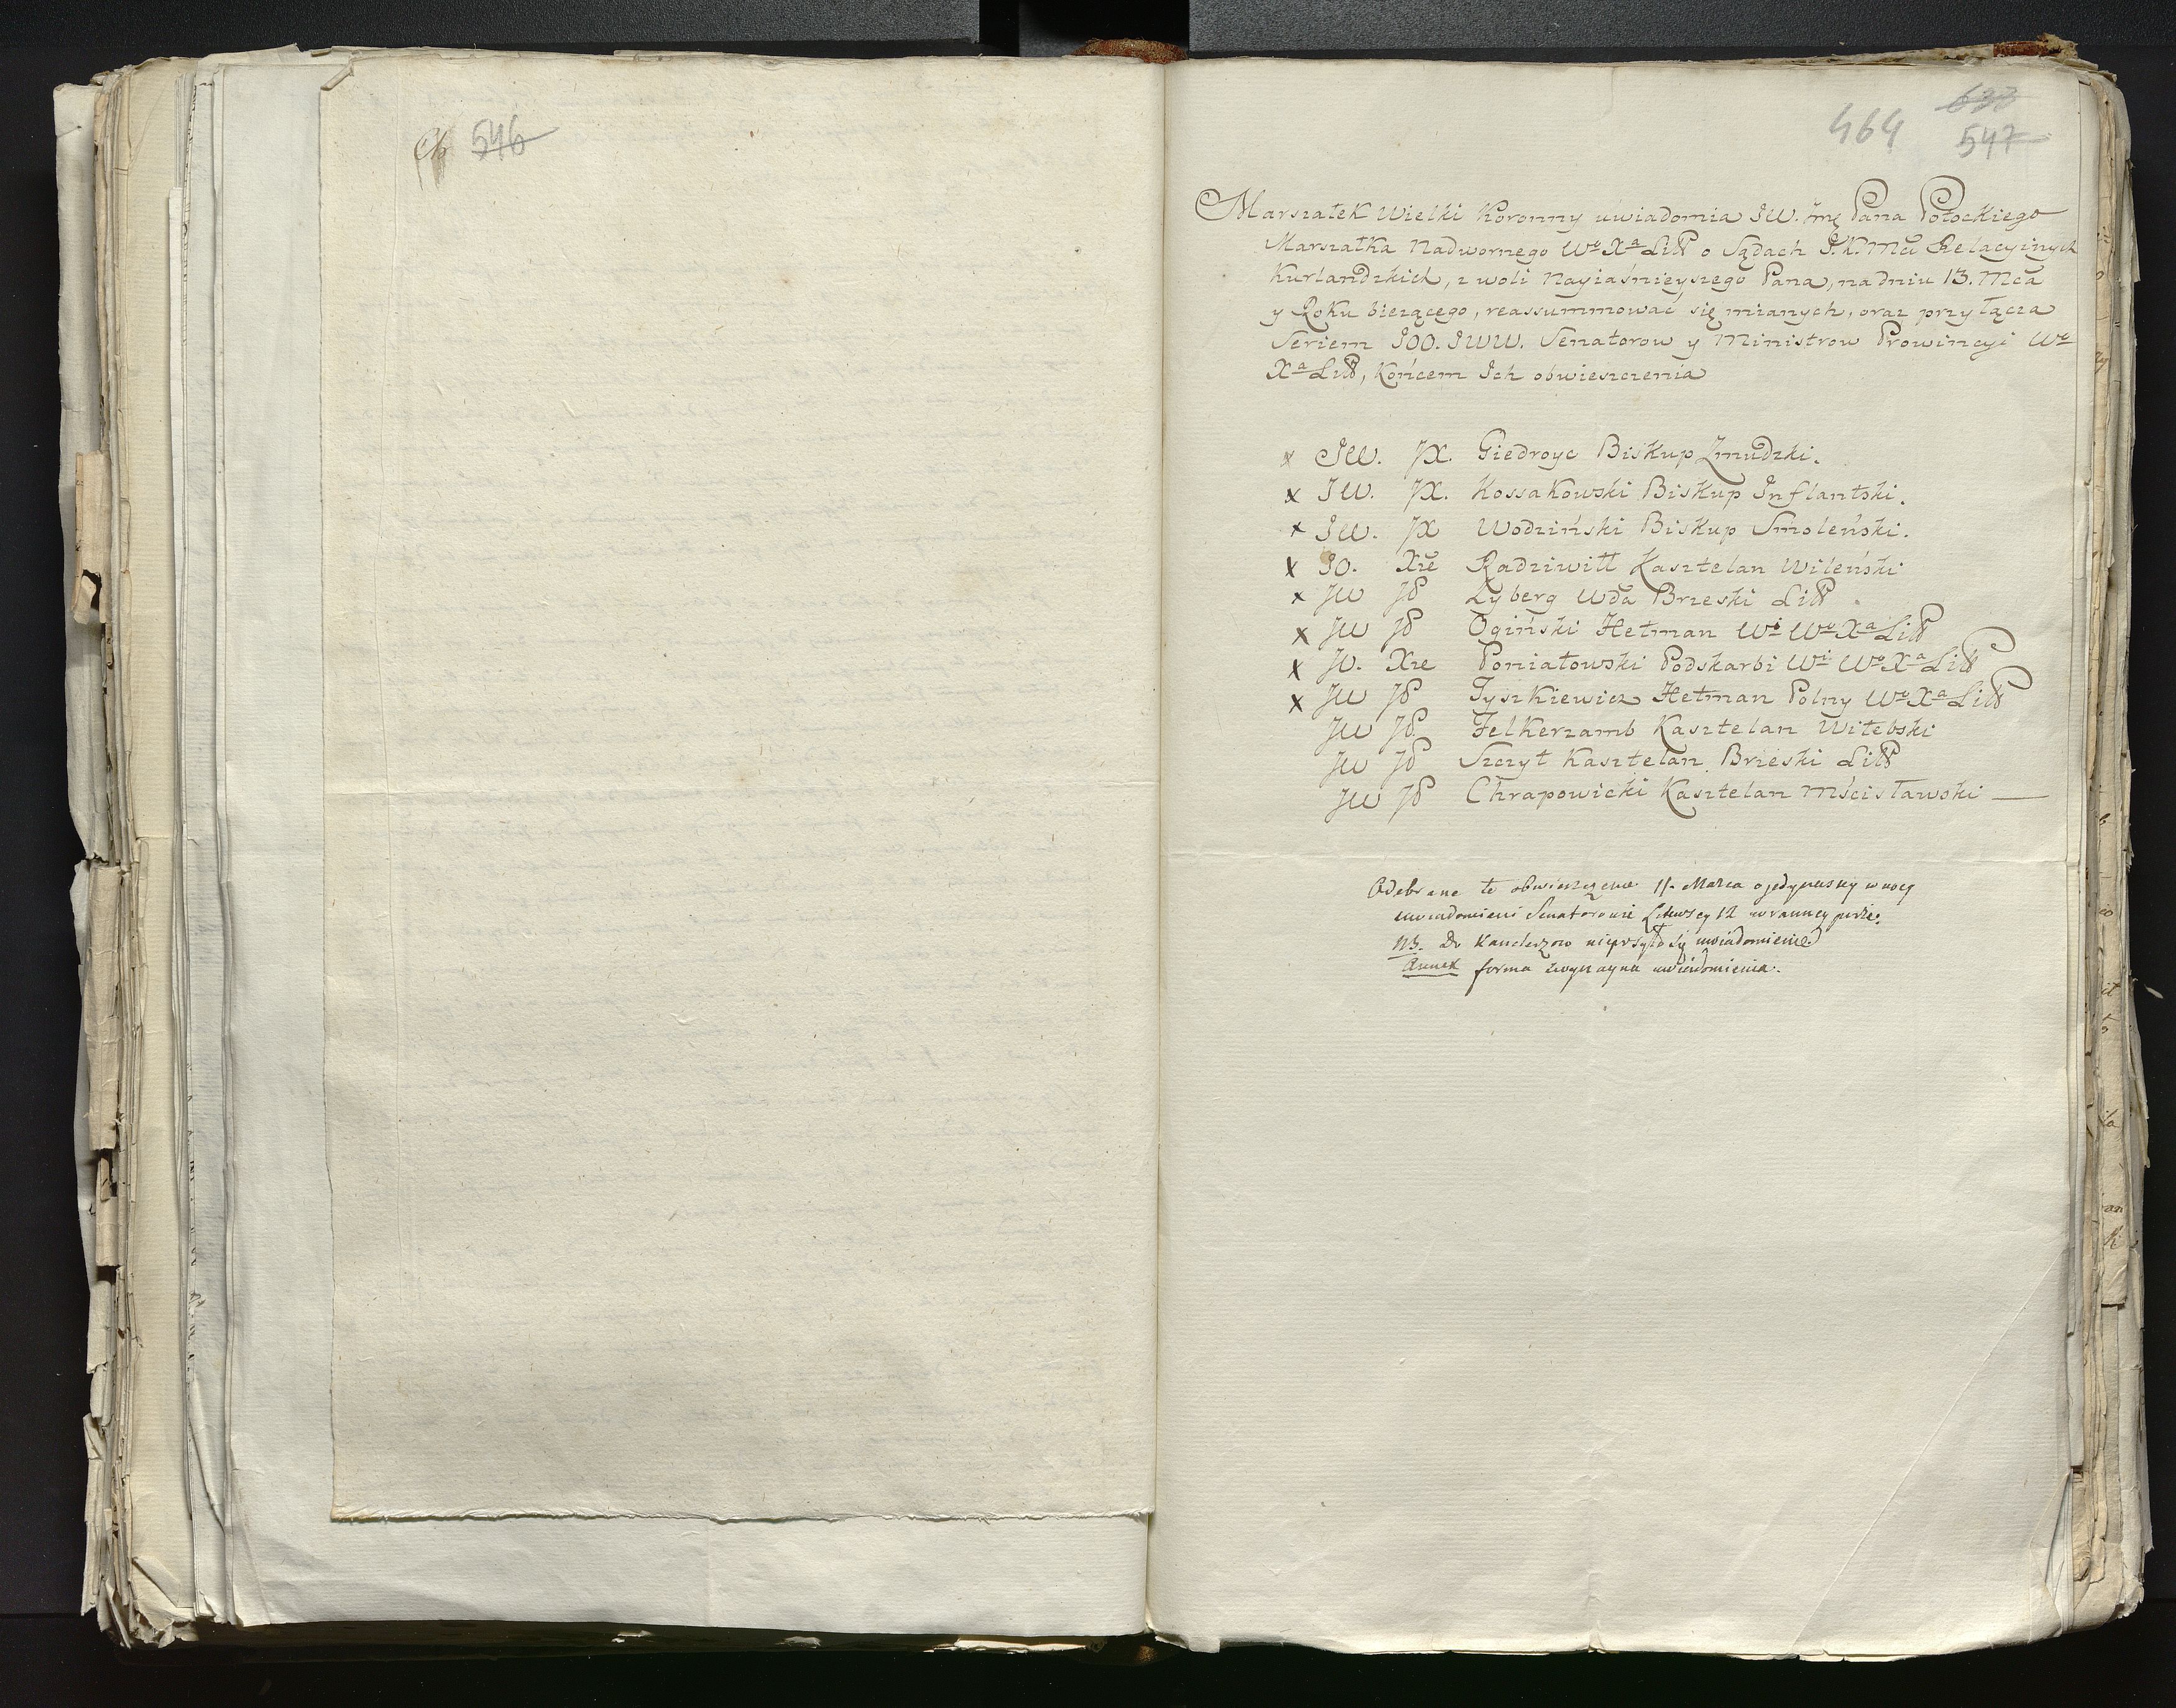 546
464 633
547
Marszałek Wielki Koronny uwiadomia JW. Jmę Pana Potockiego
Marszałka Nadwornego Wo Xa Litt o Sądach J.K.Mci Relacyinych
Kurlandzkich, z woli Nayiaśnieyszego Pana, na dniu 13. Mca
y Roku bieżącego, reassummować się mianych, oraz przyłącza
Seriem JOO. JWW. Senatorow y Ministrow Prowincyi Wo
Xa Litt, Końcem Ich obwieszczenia
x JW. JX. Giedroyc Biskup Zmudzki.
x JW. JX. Kossakowski Biskup Inflantski.
x JW. JX Wodziński Biskup Smoleński.
x JO. Xże Radziwiłł Kasztelan Wileński
x JW JP Zyberg Wda Brzeski Litt
x JW JP Ogiński Hetman Wi Wo Xa Litt
x J.O. Xże Poniatowski Podskarbi Wi Wo Xa Litt
x JW JP Tyszkiewicz Hetman Polny Wo Xa Litt
JW JP Felkerzamb Kasztelan Witebski
JW JP Szczyt Kasztelan Brzeski Litt
JW JP Chrapowicki Kasztelan Mścisławski
Odebrane te obwieszczenie 11. Marca o jedynastey w nocy
uwiadomieni Senatorowie Litewscy 12 w ranney porze.
NB. Do Kanclerzow nieprzysyła się uwiadomienie
Annex forma zwyczayna uwiadomienia.